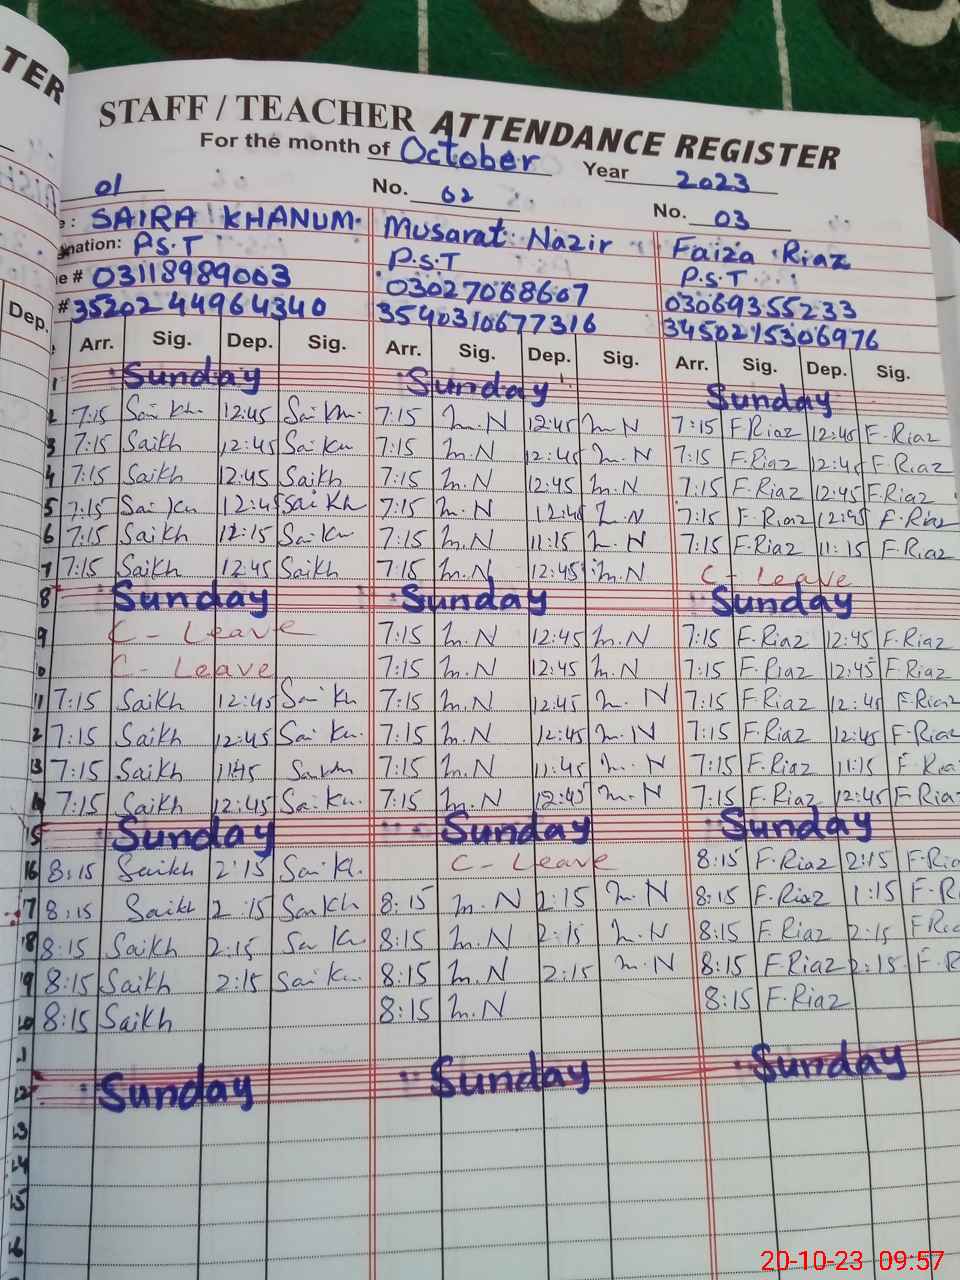 TER
STAFF / TEACHER ATTENDANCE REGISTER
For the month of October Year 2023
01 No. 02 No. 03
: SAIRA KHANUM. Musarat Nazir Faiza Riaz
nation: P.S.T P.S.T P.S.T
e # 03118989003 03027068607 03069355233
# 35202 44964340 3540310677316 3450215306976
Dep. Arr. Sig. Dep. Sig. Arr. Sig. Dep. Sig. Arr. Sig. Dep. Sig.
1 Sunday Sunday Sunday
2 7:15 Sai kh. 12:45 Sai kh. 7:15 M.N 12:45 M N 7:15 F.Riaz 12:45 F.Riaz
3 7:15 Saikh 12:45 Sai Kh 7:15 M.N 12:45 M.N 7:15 F.Riaz 12:45 F.Riaz
4 7:15 Saikh 12:45 Saikh 7:15 M.N 12:45 M.N 7:15 F.Riaz 12:45 F.Riaz
5 7:15 Sai Kh 12:45 Sai kh 7:15 M.N 12:45 M.N 7:15 F.Riaz 12:45 F.Riaz
6 7:15 Saikh 12:15 Sai Kh 7:15 M.N 11:15 M.N 7:15 F.Riaz 11:15 F.Riaz
7 7:15 Saikh 12:45 Saikh 7:15 M.N 12:45 M.N C - Leave
8 Sunday Sunday Sunday
9 C - Leave 7:15 M.N 12:45 M.N 7:15 F.Riaz 12:45 F.Riaz
0 C - Leave 7:15 M.N 12:45 M.N 7:15 F.Riaz 12:45 F.Riaz
11 7:15 Saikh 12:45 Sai Kh 7:15 M.N 12:45 M.N 7:15 F.Riaz 12:45 F.Riaz
2 7:15 Saikh 12:45 Sai Kh. 7:15 M.N 12:45 M.N 7:15 F.Riaz 12:45 F.Ria
13 7:15 Saikh 11:45 7:15 M.N 11:45 M.N 7:15 F.Riaz 11:15 F Ria
14 7:15 Saikh 12:45 Sai Kh. 7:15 M.N 12:45 M.N 7:15 F.Riaz 12:45 F Ria
15 Sunday Sunday Sunday
16 8:15 Saikh 2:15 Sai K. C - Leave 8:15 F.Riaz 2:15 F.Ria
17 8:15 Saikh 2:15 Saikh 8:15 M.N 2:15 M.N 8:15 F.Riaz 1:15 F.R
18 8:15 Saikh 2:15 Sa Kh 8:15 M.N 2:15 M.N 8:15 F.Riaz 2:15 F Ria
19 8:15 Saikh 2:15 Sai K. 8:15 M.N 2:15 M.N 8:15 F.Riaz 2:15 F.R
20 8:15 Saikh 8:15 M.N 8:15 F.Riaz
Sunday Sunday Sunday
20-10-23 09:57